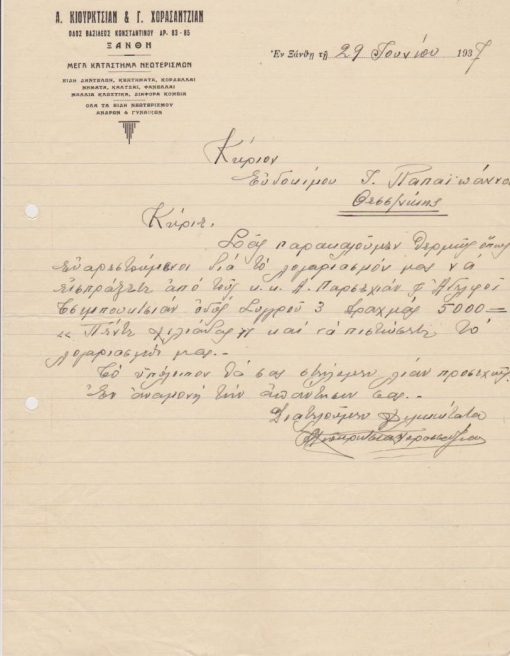 Α. ΚΙΟΥΡΚΤΣΙΑΝ & Γ. ΧΟΡΑΣΑΝΤΖΙΑΝ
ΟΔΟΣ ΒΑΣΙΛΕΩΣ ΚΩΝΣΤΑΝΤΙΝΟΥ ΑΡ. 83-85
ΞΑΝΘΗ
ΜΕΓΑ ΚΑΤΑΣΤΗΜΑ ΝΕΩΤΕΡΙΣΜΩΝ
ΕΙΔΗ ΔΑΝΤΕΛΩΝ, ΚΕΝΤΗΜΑΤΑ, ΚΟΡΔΕΛΛΑΙ
ΝΗΜΑΤΑ, ΚΑΛΤΣΑΙ, ΦΑΝΕΛΛΑΙ
ΜΑΛΛΙΑ ΚΛΩΣΤΙΚΑ, ΔΙΑΦΟΡΑ ΚΟΜΒΙΑ
ΟΛΑ ΤΑ ΕΙΔΗ ΝΕΩΤΕΡΙΣΜΟΥ
ΑΝΔΡΩΝ & ΓΥΝΑΙΚΩΝ
Ἐν Ξάνθῃ τῇ 29 Ἰουνίου 1937
Κύριον
Εὐδοκίμου Ι. Παπαϊωάννου
Θεσσ/νίκης
Κύριε,
Σᾶς παρακαλοῦμεν θερμῶς ὅπως
εὐαρεστούμενοι διὰ τὸ λογαριασμόν μας νὰ
εἰσπράξετε ἀπὸ τοὺς κ.κ. Α. Παρσεχιὰν & Ἀδελφοὶ
Τσεμπουκτσιὰν ὁδὸς Συγγροῦ 3 δραχμὰς 5000=
« Πέντε χιλιάδας » καὶ νὰ πιστώσετε τὸ
λογαριασμόν μας..
Τὸ ὑπόλοιπον θὰ σας στείλωμεν λίαν προσεχῶς.
Ἐν ἀναμονῇ τὴν ἀπάντησιν σας..
Διατελοῦμεν φιλικώτατα